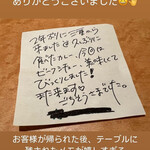 ありがとうございました
7年ぶりに三重から
来ました
久しぶりに
食べたカレー、今回は
ビーフシチュー美味しくて
びっくりしました!
また来ます
ごちそうさまでした。
お客様が帰られた後、テーブルに